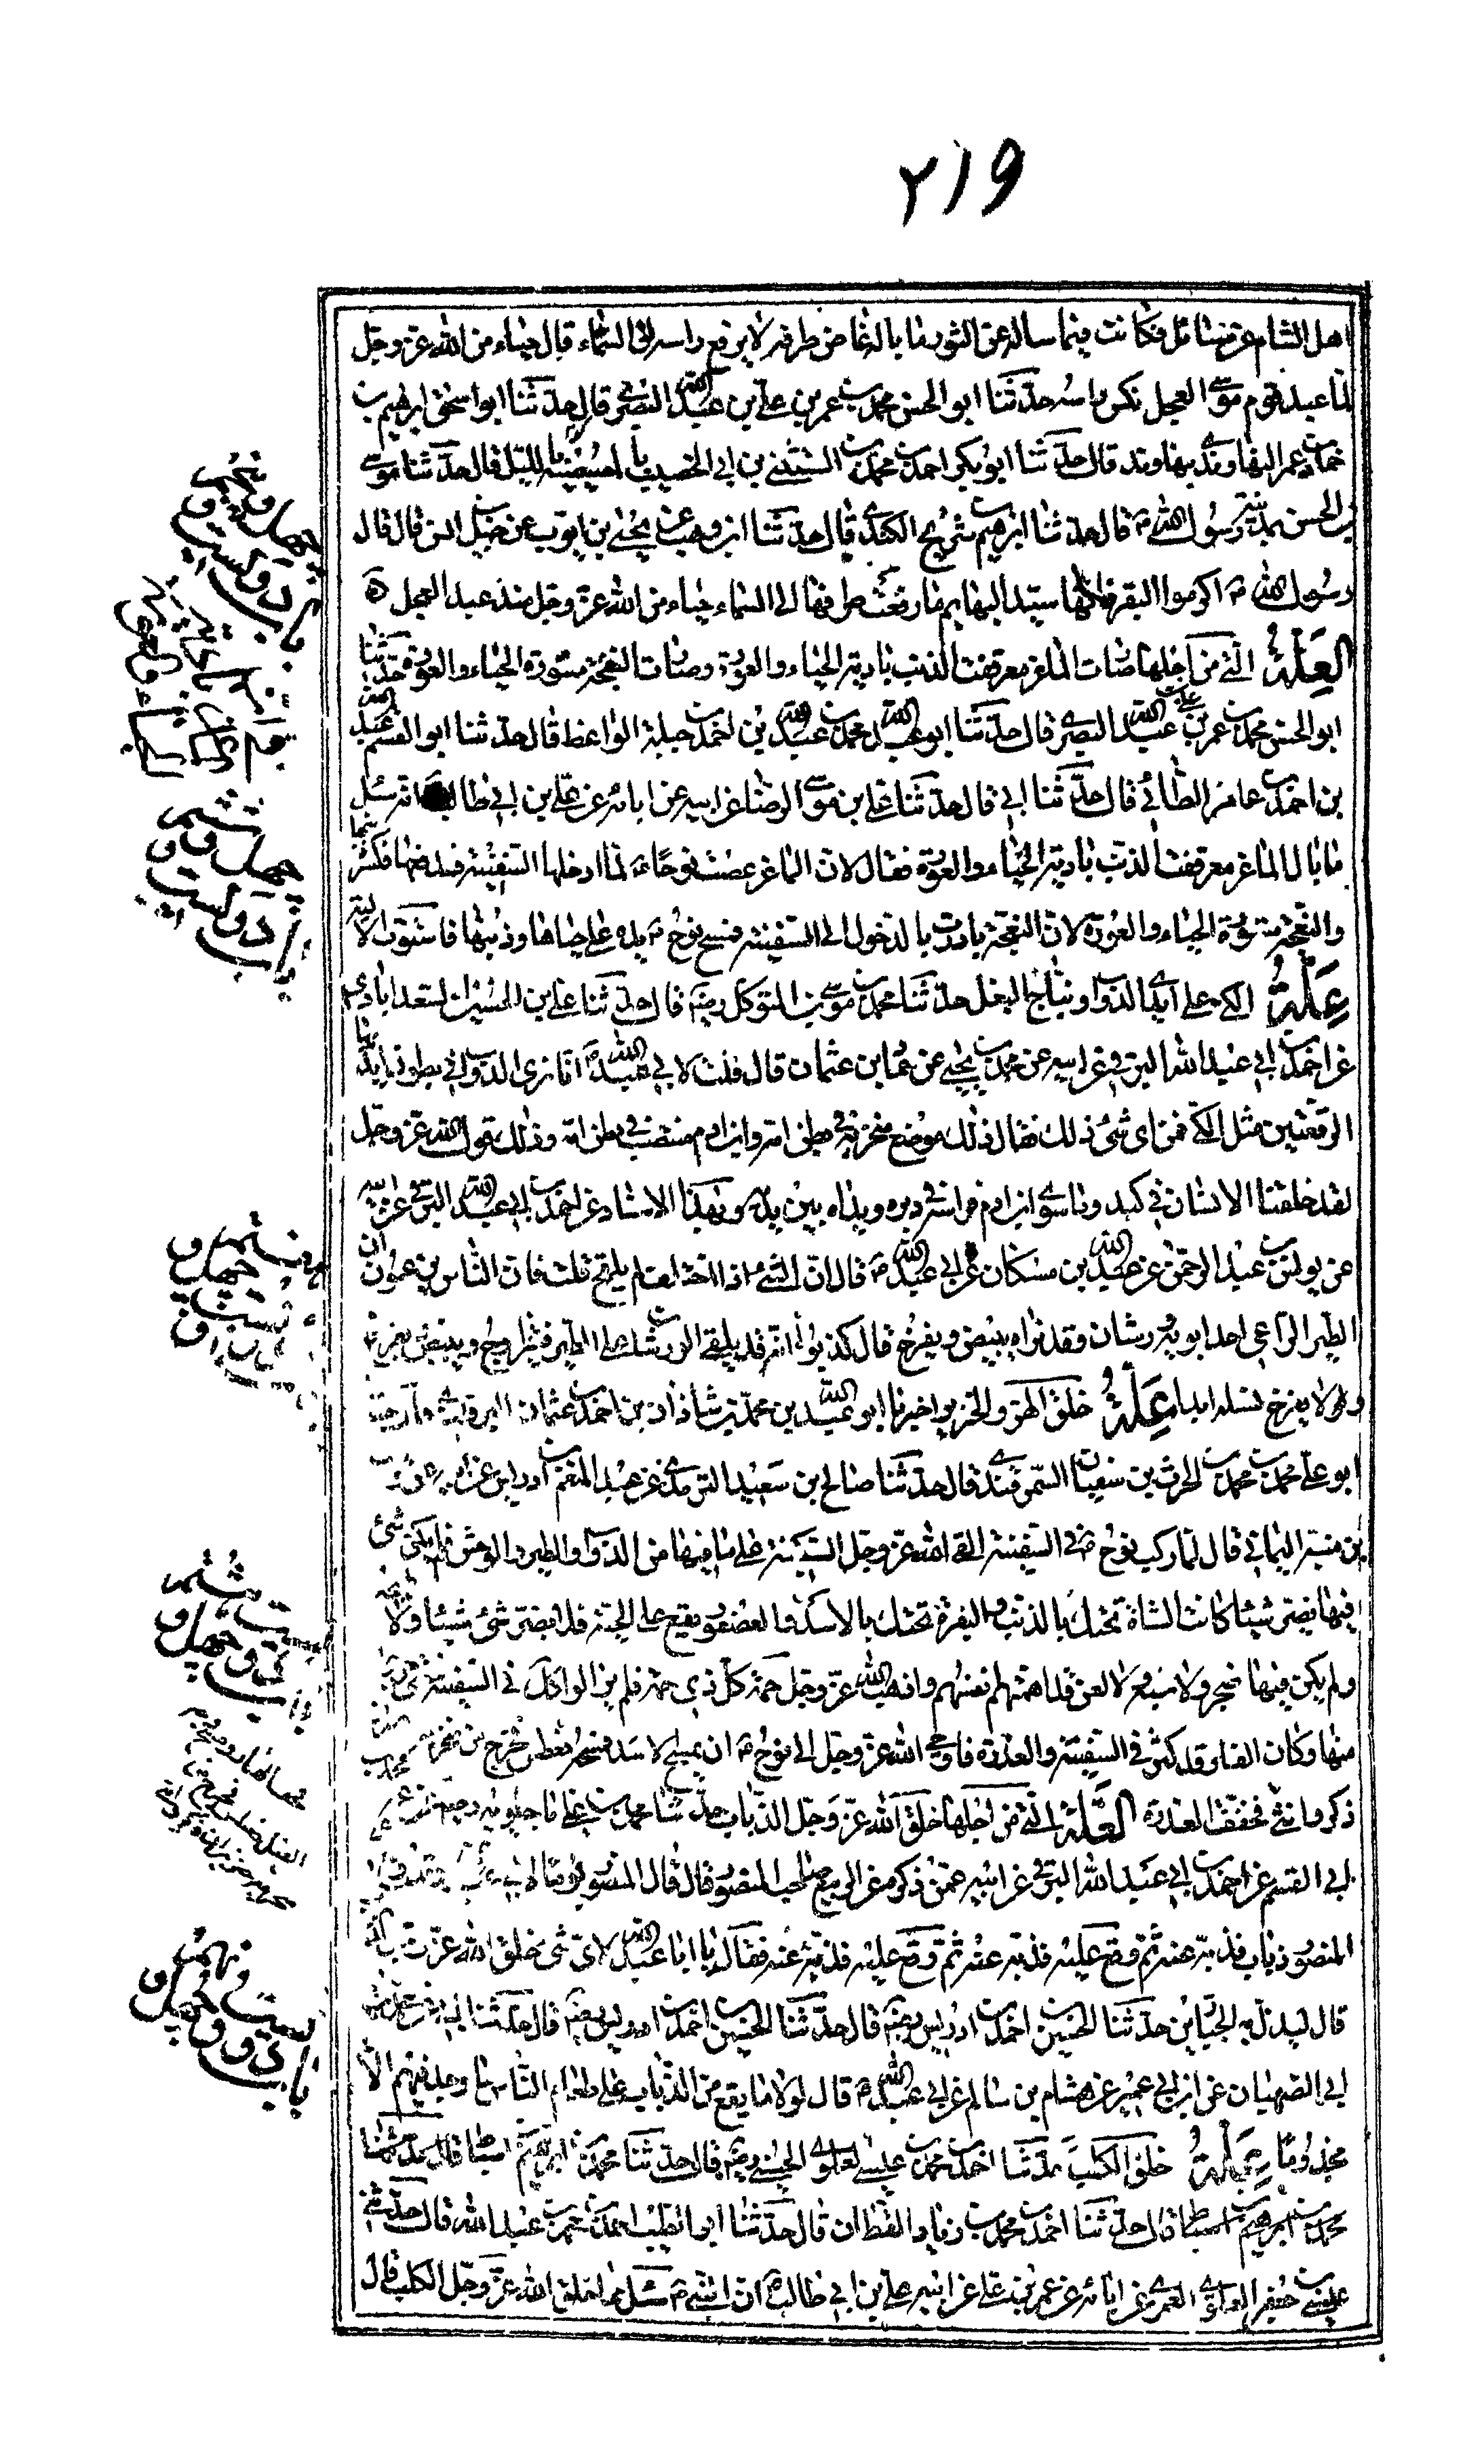 ٢١٩
اهل الشام عن مسائل فكانت فيما ساله عن الثور ما باله غاض طرفه لا يرفع راسه الى السماء قال حياء من الله عز وجل
لما عبد قوم موسى العجل نكس راسه حدثنا ابو الحسن محمد بن عمر بن علي بن عبد الله البصري قال حدثنا ابو اسحق ابرهيم بن
حماد بن عمر النهاوندي بنهاوند قال حدثنا ابو بكر احمد بن محمد بن المستثنى بن ابي الخصيب بالمصيصة بالليل قال حدثنا موسى
بن الحسن بمدينة رسول الله ص قال حدثنا ابرهيم بن شريح الكندي قال حدثنا ابن وهب عن يحيى بن ايوب عن جميل بن انس قال قال
رسول الله ص اكرموا البقر فانها سيد البهايم ما رفعت طرفها الى السماء حياء من الله عز وجل منذ عبد العجل
العلة التي من اجلها صارت الماعز مفرقعة الذنب بادية الحياء والعورة وصارت النعجة مستورة الحياء والعورة حدثنا
ابو الحسن محمد بن عمر بن علي بن عبد الله البصري قال حدثنا ابو عبد الله محمد بن عبد الله بن احمد بن جبلة الواعظ قال حدثنا ابو القسم عبد الله
بن احمد بن عامر الطائي قال حدثنا ابي قال حدثنا علي بن موسى الرضا عن ابيه عن ابائه عن علي بن ابي طالب انه سئل
ما بال الماعز مفرقعة الذنب بادية الحياء والعورة فقال لان الماعز عصت نوحا ع لما ادخلها السفينة فدفعها فكسر ذنبها
والنعجة مستورة الحياء والعورة لان النعجة بادرت بالدخول الى السفينة فمسح نوح ع يده على حياها وذنبها فاستوت الالية
علة الكى على ايدي الدواب ونتاج البغل حدثنا محمد بن موسى بن المتوكل رضه قال حدثنا علي بن الحسين السعدابادي
عن احمد بن ابي عبد الله البرقي عن ابيه عن محمد بن يحيى عن حماد بن عثمان قال قلت لابي عبد الله ع انا نرى الدواب في بطون ايديها
الرقعتين مثل الكى فمن اى شئ ذلك فقال ذلك موضع منخريه في بطن امه وابن ادم منتصب في بطن امه وذلك قول الله عز وجل
لقد خلقنا الانسان في كبد وما سوى ابن ادم فراسه في دبره ويداه بين يديه وبهذا الاسناد عن احمد بن ابي عبد الله البرقي عن ابيه
عن يونس بن عبد الرحمن عن عبد الله بن مسكان عن ابي عبد الله ع قال ان الشئ اذا لقح لم يلقح قلت فان الناس يزعمون ان
الطير الراعبي احد ابويه ورشان وقد نراه يبيض ويفرخ قال كذبوا انه قد يلقى الورشان على الطير فيزاوج ويبيض
ولا يفرخ نسله ابدا علة خلق الهر والخنزير اخبرنا ابو عبد الله بن محمد بن شاذان بن احمد بن عثمان البرواذي قال حدثنا
ابو علي محمد بن محمد بن الحرث بن سفيان السمرقندي قال حدثنا صالح بن سعيد الترمذي عن عبد المنعم بن ادريس عن ابيه عن وهب
بن منبه اليماني قال لما ركب نوح ع في السفينة القى الله عز وجل السكينة على ما فيها من الدواب والطير والوحش فلم يكن شئ
فيها يضر شيئا كانت الشاة تحتك بالذئب والبقرة تحتك بالاسد والعصفور يقع على الحية فلا يضر شئ شيئا
ولم يكن فيها ضجر ولا سبع ولا لعن قد اهمتهم انفسهم واذهب الله عز وجل حمة كل ذي حمة فلم يزالوا كذلك في السفينة حتى خرجوا
منها وكان الفار قد كثر في السفينة والعذرة فاوحى الله عز وجل الى نوح ع ان يمسح الاسد فمسحه فعطس فخرج من منخريه هران
ذكر وانثى فخفف العذرة العلة التي من اجلها خلق الله عز وجل الذباب حدثنا محمد بن علي ماجيلويه رضه عن عمه محمد بن
ابي القسم عن احمد بن ابي عبد الله البرقي عن ابيه عمن ذكره عن الربيع صاحب المنصور قال قال المنصور يوما لابي عبد الله وقد وقع على
المنصور ذباب فذبه عنه ثم وقع عليه فذبه عنه ثم وقع عليه فذبه عنه فقال يا ابا عبد الله لاى شئ خلق الله عز وجل الذباب
قال ليذل به الجبارين حدثنا الحسين بن احمد بن ادريس رضه قال حدثنا الحسين بن احمد بن ادريس رضه قال حدثنا ابي عن محمد بن
ابي الصهبان عن ابن ابي عمير عن هشام بن سالم عن ابي عبد الله ع قال لولا ما يقع من الذباب على طعام الناس ما وجد فيهم الا
مجذوما علة خلق الكلب حدثنا احمد بن محمد بن عيسى العلوي الحسيني رضه قال حدثنا محمد بن ابرهيم بن اسباط قال حدثنا
محمد بن ابرهيم بن اسباط قال حدثنا احمد بن محمد بن زياد القطان قال حدثنا ابو الطيب احمد بن محمد بن عبد الله قال حدثني
عيسى بن جعفر العلوي العمري عن ابائه عن عمر بن علي عن ابيه علي بن ابي طالب ان النبي ص سئل مما خلق الله عز وجل الكلب قال
باب دويست و چهل و پنجم
باب دويست و چهل و ششم
باب دويست و چهل و هفتم
باب دويست و چهل و هشتم
باب دويست و چهل و نهم